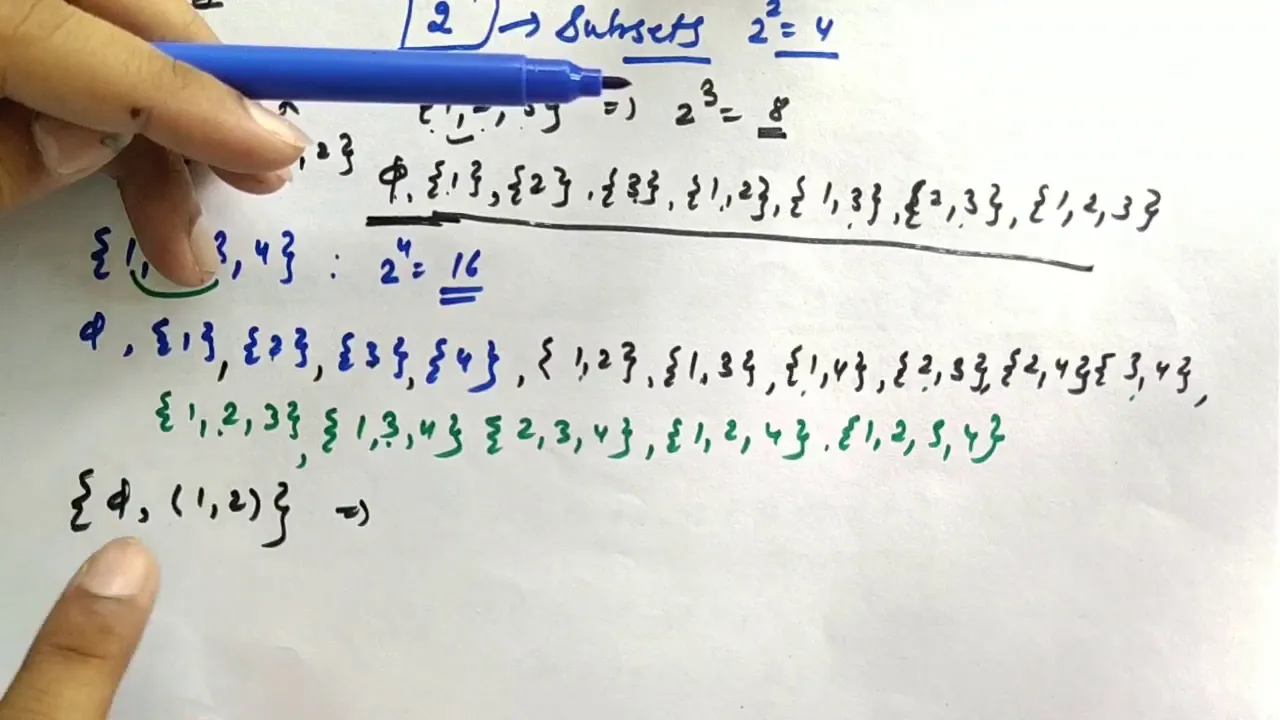 2 → Subsets 2² = 4
{1, 2, 3} ⇒ 2³ = 8
, 2}
φ, {1}, {2}, {3}, {1,2}, {1,3}, {2,3}, {1,2,3}
{1, 3, 4} : 2⁴ = 16
φ, {1}, {2}, {3}, {4}, {1,2}, {1,3}, {1,4}, {2,3}, {2,4} {3,4},
{1,2,3}, {1,3,4} {2,3,4}, {1,2,4}. {1,2,3,4}
{φ, (1,2)} ⇒